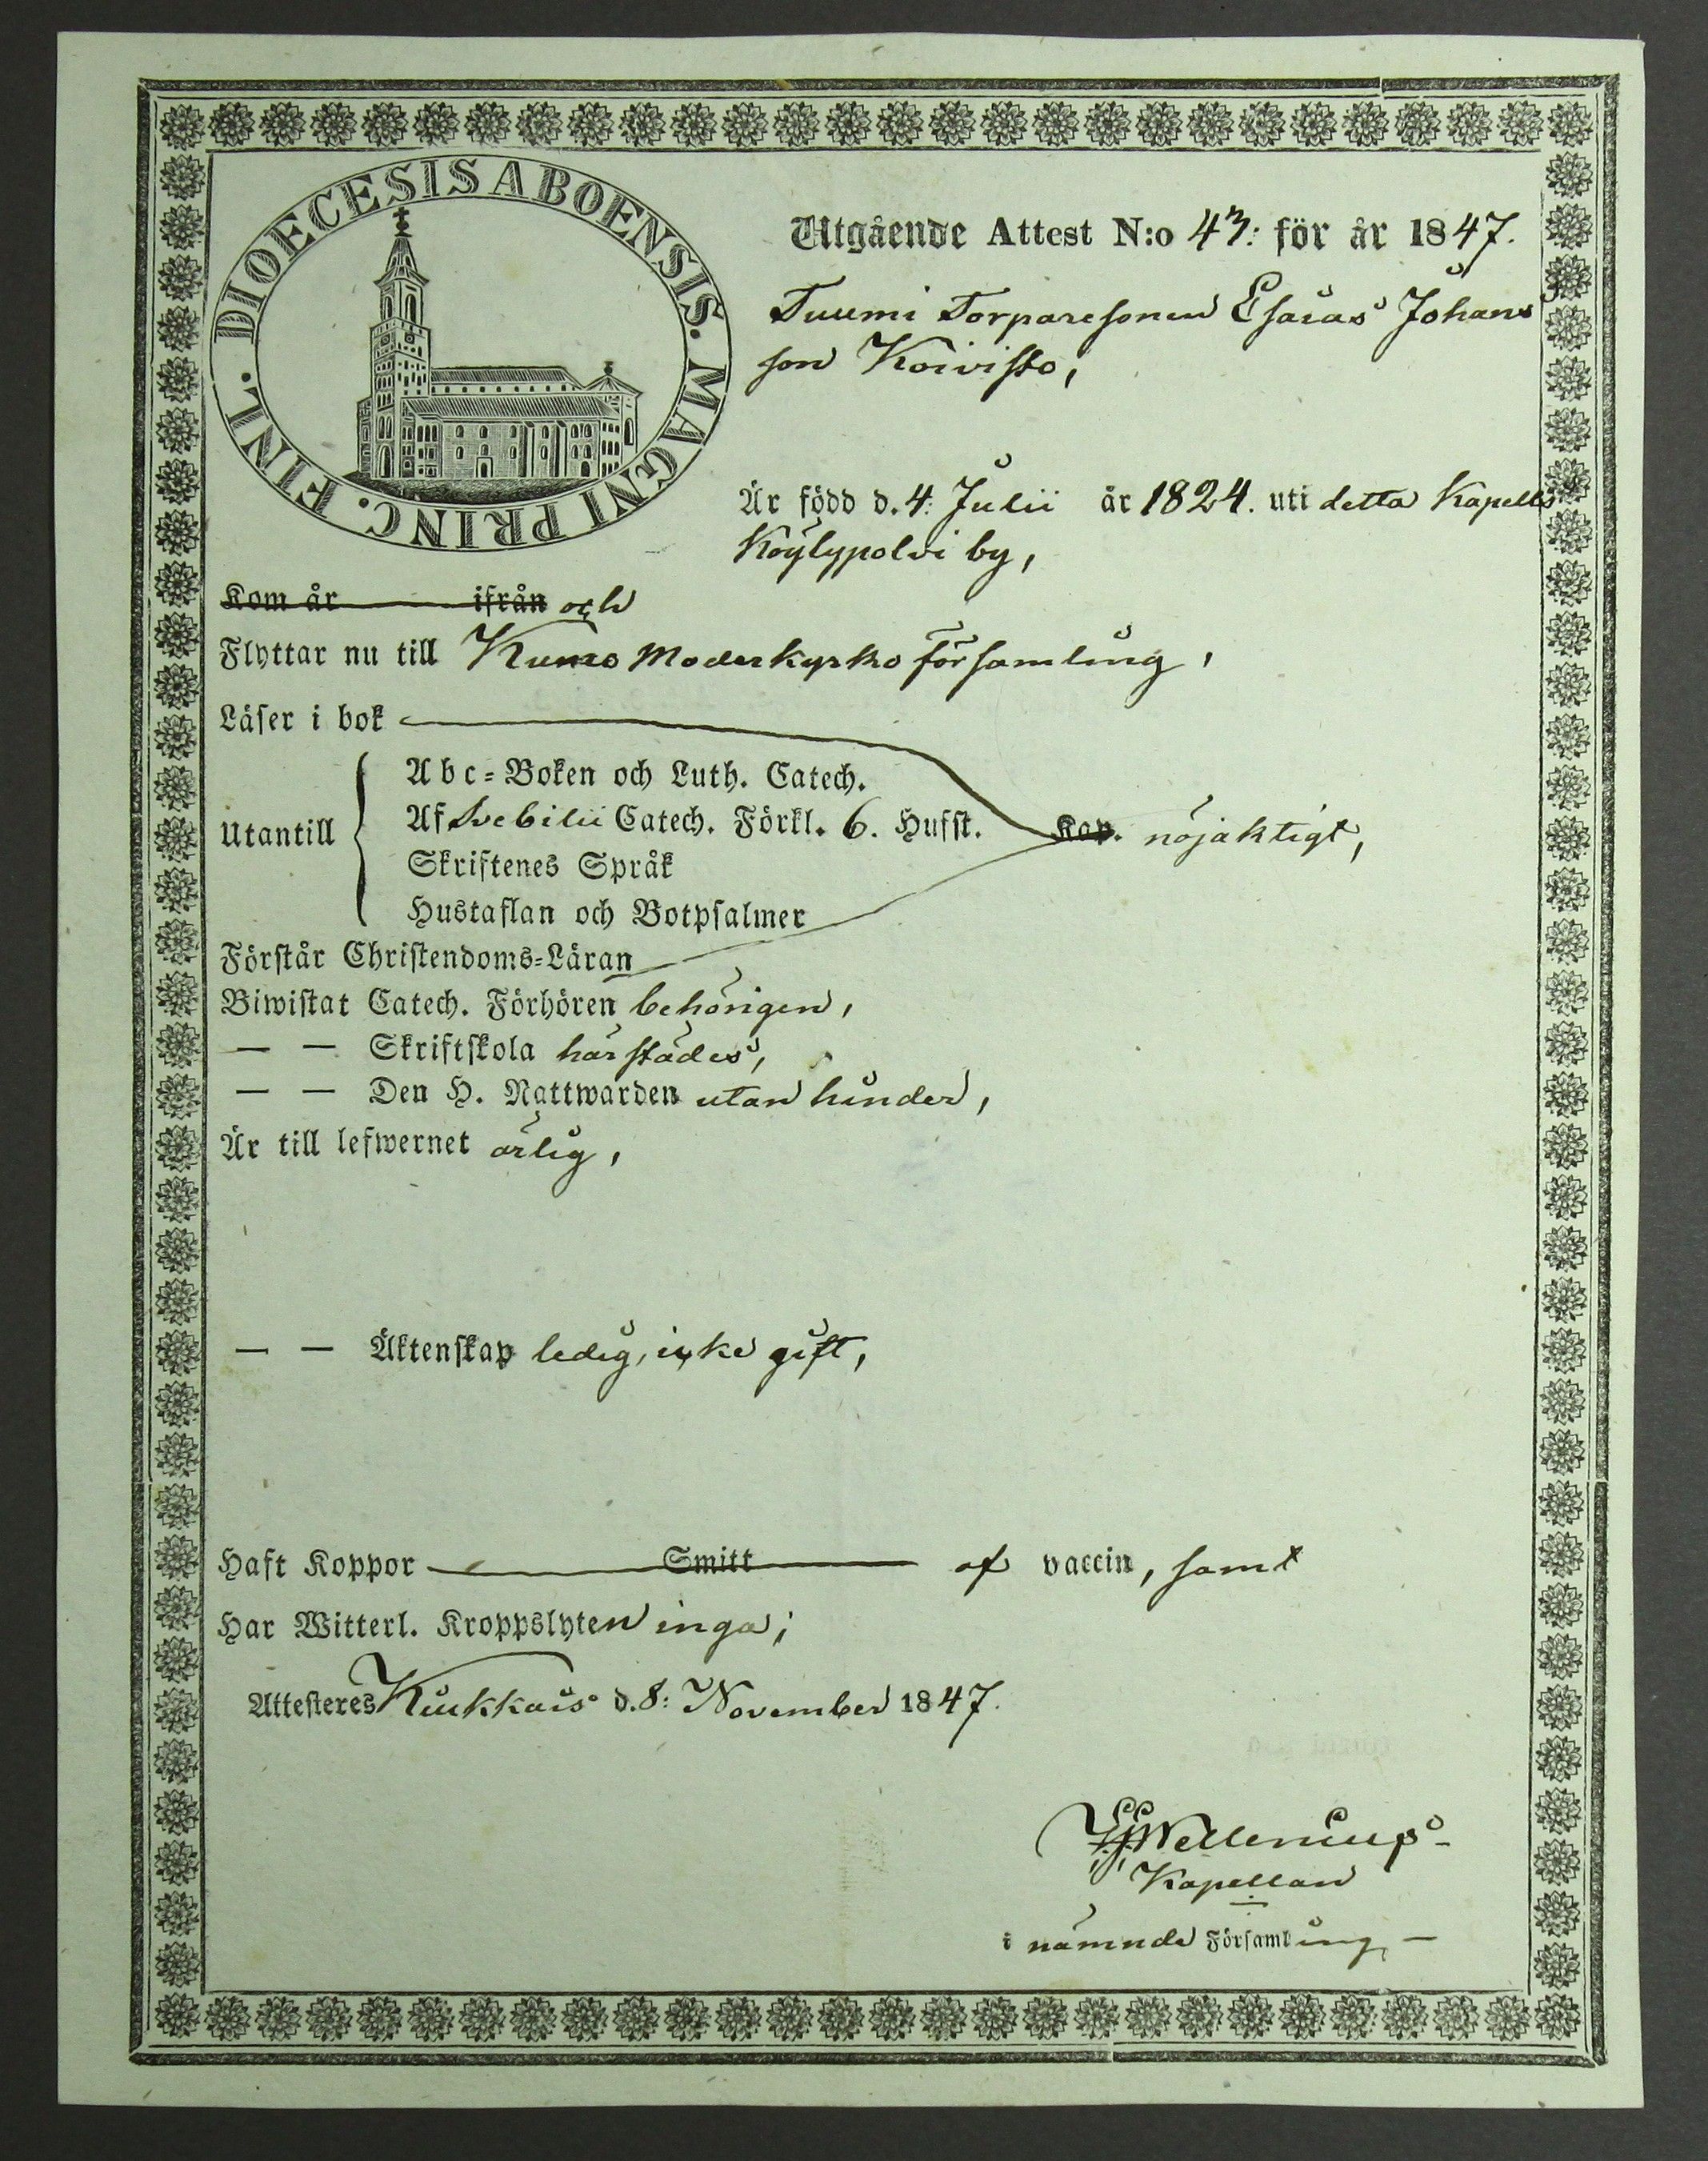 DIOECESIS ABOENSIS. MAGNI PRINC. FINL.
Utgående Attest N:o 43: för år 1847.
Tuumi Torparesonen Esaias Johans
son Koivisto,
Är född d. 4: Julii år 1824. uti detta Kapells
Köylypolvi by,
Kom år ifrån och
Flyttar nu till Kumo Moderkyrko församling,
Läser i bok
Abc-Boken och Luth. Catech.
Utantill Af Svebilii Catech. Förkl. 6. Hufst. Kap. nöjaktigt,
Skriftenes Språk
Hustaflan och Botpsalmer
Förstår Christendoms-Läran
Biwistat Catech. Förhören behörigen,
— — Skriftskola härstädes,
— — Den H. Nattwarden utan hinder,
Är till lefwernet ärlig,
— — Äktenskap ledig, icke gift,
Haft Koppor Smitt af vaccin, samt
Har Witterl. Kroppslyten inga;
Attesteres Kiukkais d. 8: November 1847.
Kapellan
i nämnde Församling —